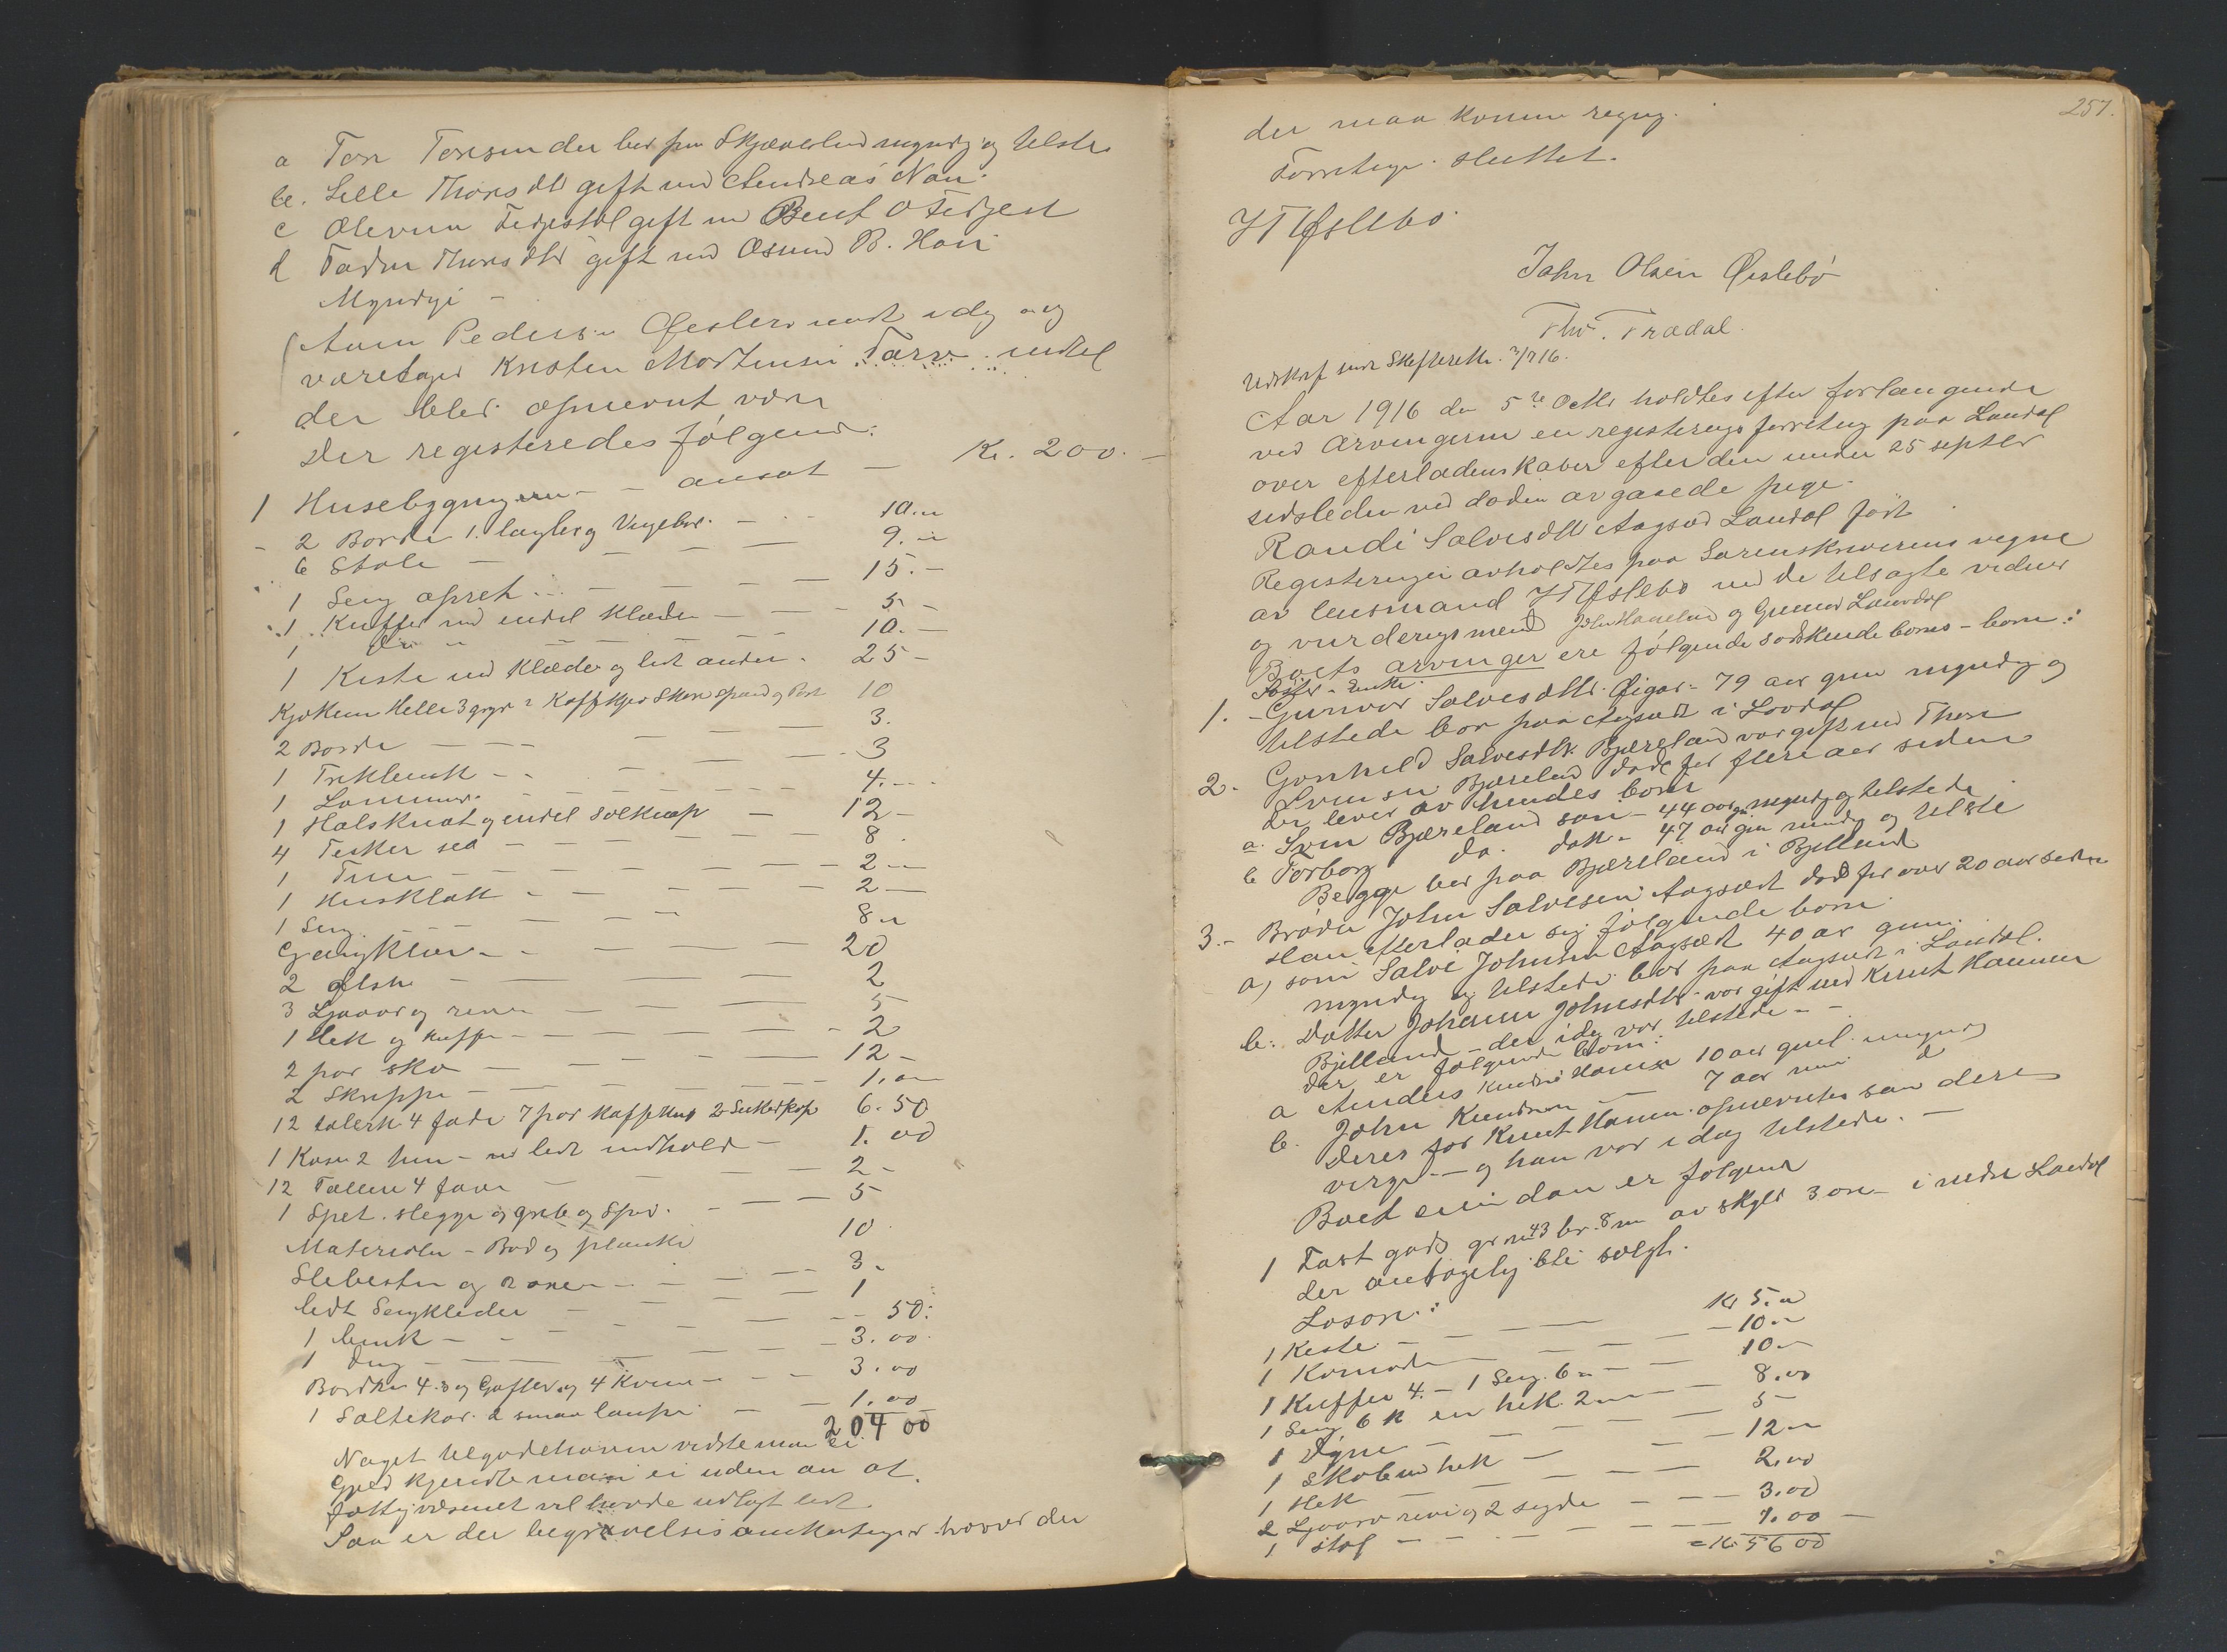 a Tore Toresen der bor paa Skjævesland myndig og tilstede
b. Sille Thorsdtr gift med Andreas Nau.
c Olevine Feigestøl gift m Bent O Feigest
d Tadne Thorsdtr gift med Osmund B. Hau
Myndige –
Aom Pedersen Øislebø mødt idag og
varetager Kristen Mortensen
der blev opnevnt vere
Der registeredes følgende:
1 Husebygningen – – ansat – Kr. 200. –
2 Borde 1. – 10.„
6 Stole – – – 9.„
1 Seng opret – – – 15.–
1 Kuffer med endel Klæder – – – 5 –
1 do „ – – 10.–
1 Kiste med Klæder og lidt andet. 25 –
Kjøkken Helle 3 gryr 2 Kaffekjer Skore spand og 10
2 Borde – – – 3.
1 – – – 3
1 Lommeur. – – – 4. –
1 Halsknap og endel solknap – 12 –
4 Tesker sea – – – 8.
1 Tine – – – 2 –
1 Husklokk – – – 2 –
1 Seng – – – 8 „
Gangklær – – – 20
2 – – – 2
3 Ljaaer og – – – 5
1 Hek og kuffer – – – 2
2 par sko – – – 12 –
2 Skreppe – – – 1.„
12 talerk 4 fade 7 par kaffekop 2 Sukkerkop 6.50
1 Kasse 2 – med lidt indhold – 1.00
12 Tallerk 4 – – 2 –
1 Spet. slegge og greb og – – 5
Materialer – Bord og planker 10
Slebesten og 2 – – 3 „
lidt Sengkleder – – 1
1 benk – – – 50:
1 Dug – – – 3.00
Bordkn 4. 3 og Gafler og 4 – – 3.00
1 Saltekar. 2 smaa – – 1.00
204 00
Noget tilgodehavende vidste man ei
Gjeld kjendte man ei uden an at
fattigvæsenet vil havde udlagt lidt.
Saa er der begravelsesomkostninger hvorover der
257.
der maa komme regng.
Forretnge sluttet.
HTØslebø
John Olsen Øislebø
Tho. Trædal.
Udskrift sendt Skifterette. 2/7 16.
Aar 1916 den 5te Octbr holdtes efter forlangende
ved arvingerne en registerings forretning paa Laudal
over efterladenskaber efter den under 25 septbr
sidsleden ved døden avgaaede pige.
Randi Salvesdtr Aagsæd Laudal født
Registeringen avholdtes paa Sorenskriverens vegne
av lensmand HTØslebø med de tilsagte vidner
og vurderingsmend John Haaeland og Gunnar Laudal
Boets arvinger ere følgende sødskende børns – børn:
Søster – Enke.
1. – Gunvor Salvesdtr. Øigar – 79 aar gml myndig og
tilstede bor paa Aagsædt i Lavdal
2. Gonhild Salvesdtr. Bjæreland var gift med Thore
Svensen Bjæreland døde for flere aar siden
Der lever av hendes børn
a. Sven Bjæreland søn – 44 aar gm myndig og tilstede
b Torborg do. datt. – 47 aar gm mundig og tilste
Begge bor paa Bjæreland i Bjelland
3. – Broder John Salvesen Aagsædt død for over 20 aar siden
Han efterlader sig følgende børn
a) søn Salve Johnsen Aagsædt 40 ar gml.
myndig og tilstede bor paa Aagsædt i Laudal.
b. Datter Johanne Johnsdtr. var gift med Knut Hammen
Bjelland – der idag var tilstede – –
der er følgende børn:
a Anders Knudsen Hamen 10 aar gml. umyndig
b. John Knudsen – 7 aar – d
Deres far Knut Hamen opnevntes som deres
verge – og han var idag tilstede. –
Boet eiendom er følgende
1 Fast gods gr no 43 br. 8 m av skyld 3 øre – i nedre Laudal
der antagelig bli solgt.
Løsøre:
1 Kiste – – – Kr 5.„
1 Komode – – – 10 –
1 Kuffer 4. – 1 Seng. 6 „ – – 10 –
1 Seng 6 k en hek 2 – – 8.00
1 Dyne – – – 5 –
1 Skab med hek – – – 12 „
1 Hek – – – 2.00
2 Ljaaor og 2 sigder – – – 3.00
1 stol – – – 1.00 –
= Kr 56 00